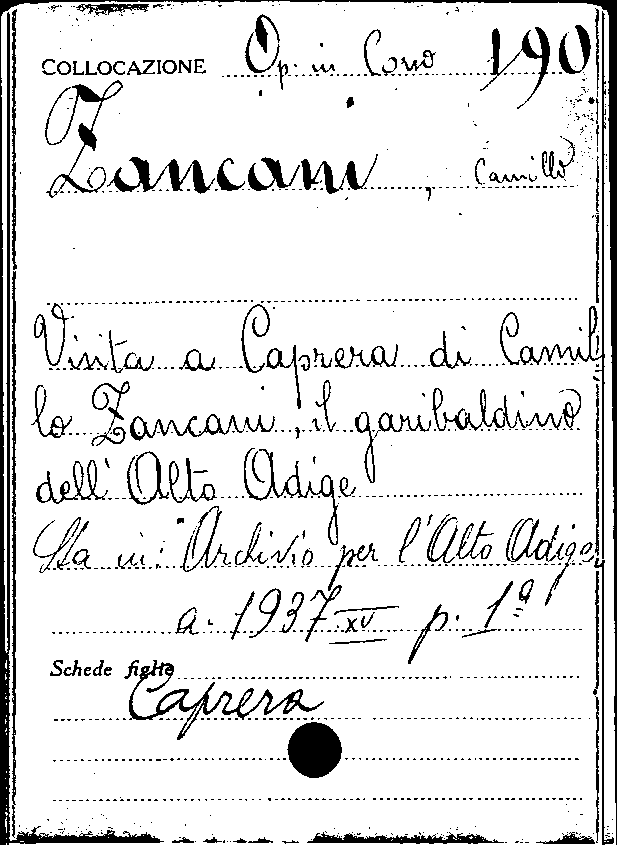 COLLOCAZIONE Op. in Corso 190
Zancani, Camillo
Visita a Caprera di Camil
lo Zancani, il garibaldino
dell'Alto Adige
Sta in: "Archivio per l'Alto Adige,
a. 1937 XV p. 1ª
Schede figlie
Caprera